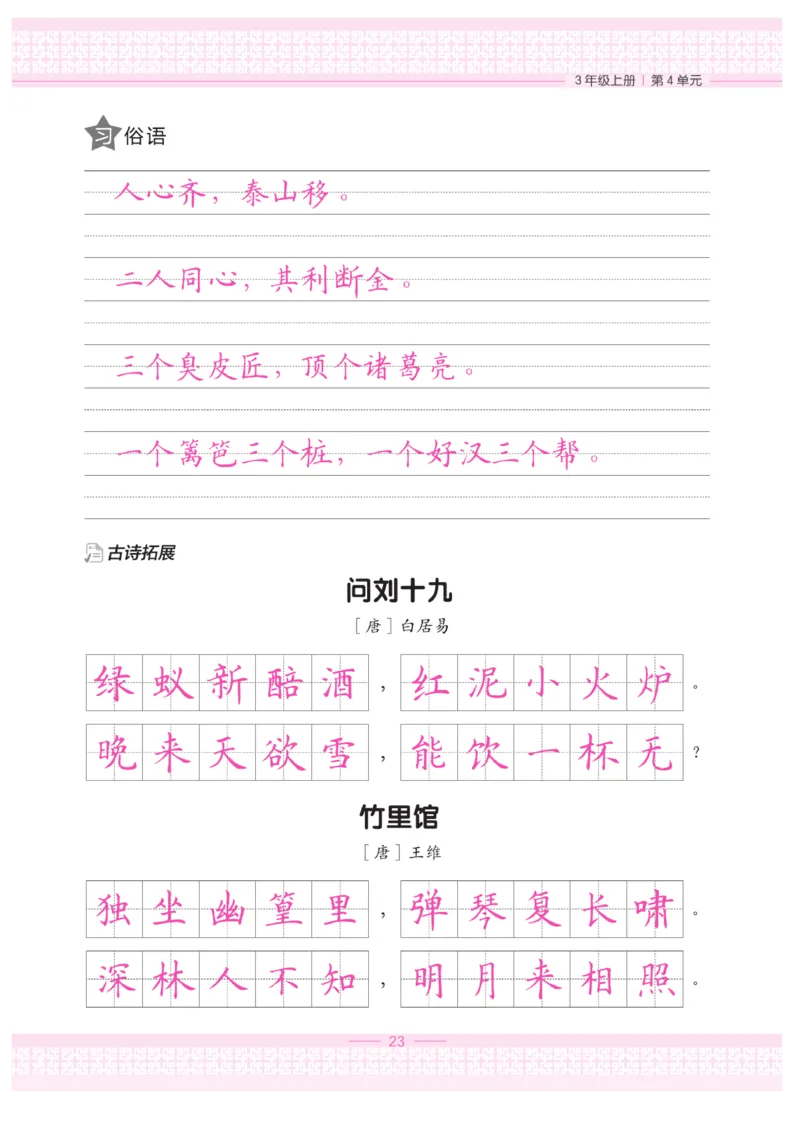 3年级上册 | 第4单元
习 俗语
人心齐，泰山移。
二人同心，其利断金。
三个臭皮匠，顶个诸葛亮。
一个篱笆三个桩，一个好汉三个帮。
古诗拓展
问刘十九
［唐］白居易
绿蚁新醅酒，红泥小火炉。
晚来天欲雪，能饮一杯无？
竹里馆
［唐］王维
独坐幽篁里，弹琴复长啸。
深林人不知，明月来相照。
23